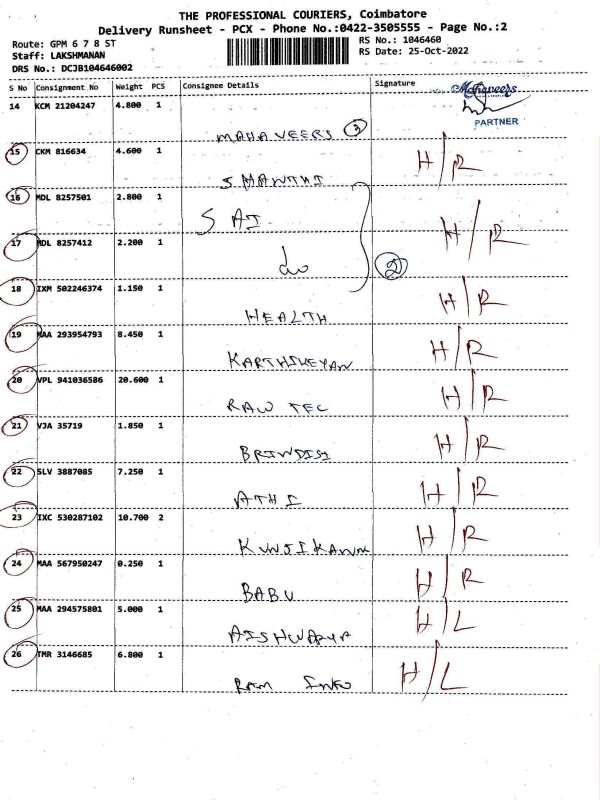 THE PROFESSIONAL COURIERS, Coimbatore
Delivery Runsheet - PCX - Phone No.:0422-3505555 - Page No.:2
Route: GPM 6 7 8 ST
RS No.: 1046460
Staff: LAKSHMANAN
RS Date: 25-Oct-2022
DRS No.: DCJB104646002
S No Consignment No Weight PCS Consignee Details Signature
Mahaveers
14 KCM 21204247 4.800 1
PARTNER
MAHAVEERS 3
15 CKM 816634 4.600 1 H/R
SMANTHI
16 MDL 8257501 2.800 1
SAI
17 MDL 8257412 2.200 1 H/R
do 2
18 IXM 502246374 1.150 1 H/R
HEALTH
19 MAA 293954793 8.450 1 H/R
KARTHIKEYAN
20 VPL 941036586 20.600 1 H/R
RAW TEC
21 VJA 35719 1.850 1 H/R
BRINDISI
22 SLV 3887085 7.250 1 H/R
ATHI
23 IXC 530287102 10.700 2 H/R
KUNJIKANN
24 MAA 567950247 0.250 1 H/R
BABU
25 MAA 294575801 5.000 1 H/L
AISHWARYA
26 TMR 3146685 6.800 1 H/L
RAM